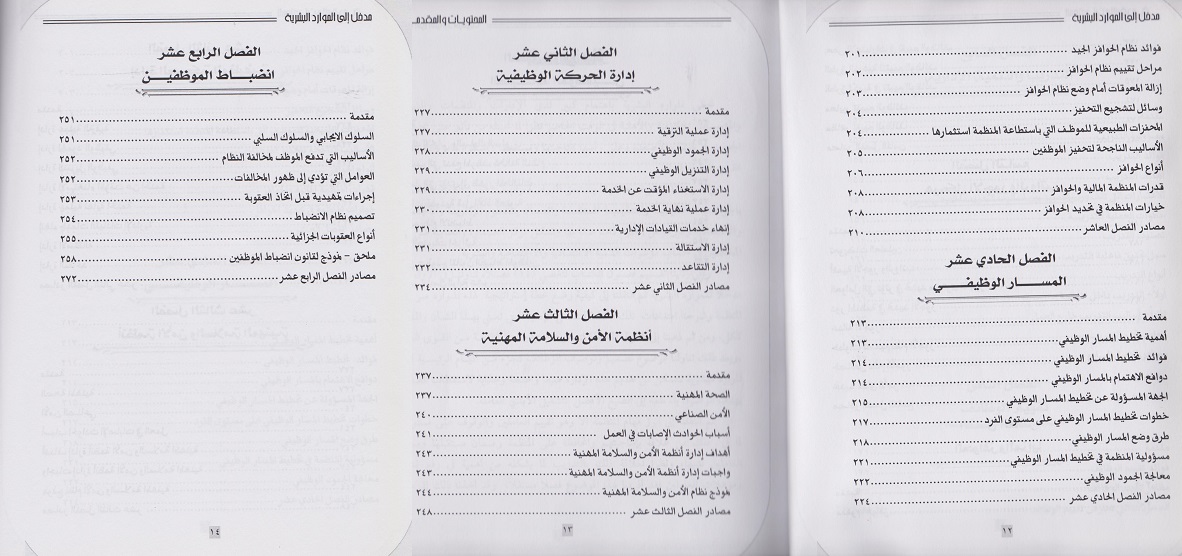 مدخل إلى الموارد البشرية
فوائد نظام الحوافز الجيد ........ ٢٠١
مراحل تقييم نظام الحوافز ........ ٢٠٢
إزالة المعوقات أمام وضع نظام الحوافز ........ ٢٠٣
وسائل لتشجيع التحفيز ........ ٢٠٤
المحفزات الطبيعية للموظف التي باستطاعة المنظمة استثمارها ........ ٢٠٤
الأساليب الناجحة لتحفيز الموظفين ........ ٢٠٥
أنواع الحوافز ........ ٢٠٦
قدرات المنظمة المالية والحوافز ........ ٢٠٨
خيارات المنظمة في تحديد الحوافز ........ ٢٠٨
مصادر الفصل العاشر ........ ٢١٠
الفصل الحادي عشر
المسار الوظيفي
مقدمة ........ ٢١٣
أهمية تخطيط المسار الوظيفي ........ ٢١٣
فوائد تخطيط المسار الوظيفي ........ ٢١٤
دوافع الاهتمام بالمسار الوظيفي ........ ٢١٤
الجهة المسؤولة عن تخطيط المسار الوظيفي ........ ٢١٥
خطوات تخطيط المسار الوظيفي على مستوى الفرد ........ ٢١٧
طرق وضع المسار الوظيفي ........ ٢١٨
مسؤولية المنظمة في تخطيط المسار الوظيفي ........ ٢٢١
معالجة الجمود الوظيفي ........ ٢٢٢
مصادر الفصل الحادي عشر ........ ٢٢٤
١٢
المحتويات والمقدمـ
الفصل الثاني عشر
إدارة الحركة الوظيفية
مقدمة ........ ٢٢٧
إدارة عملية الترقية ........ ٢٢٧
إدارة الجمود الوظيفي ........ ٢٢٨
إدارة التنزيل الوظيفي ........ ٢٢٩
إدارة الاستغناء المؤقت عن الخدمة ........ ٢٢٩
إدارة عملية نهاية الخدمة ........ ٢٣٠
إنهاء خدمات القيادات الإدارية ........ ٢٣١
إدارة الاستقالة ........ ٢٣١
إدارة التقاعد ........ ٢٣٢
مصادر الفصل الثاني عشر ........ ٢٣٤
الفصل الثالث عشر
أنظمة الأمن والسلامة المهنية
مقدمة ........ ٢٣٧
الصحة المهنية ........ ٢٣٧
الأمن الصناعي ........ ٢٤٠
أسباب الحوادث الإصابات في العمل ........ ٢٤١
أهداف إدارة أنظمة الأمن والسلامة المهنية ........ ٢٤٣
واجبات إدارة أنظمة الأمن والسلامة المهنية ........ ٢٤٣
نموذج نظام الأمن والسلامة المهنية ........ ٢٤٤
مصادر الفصل الثالث عشر ........ ٢٤٨
١٣
مدخل إلى الموارد البشرية
الفصل الرابع عشر
انضباط الموظفين
مقدمة ........ ٢٥١
السلوك الايجابي والسلوك السلبي ........ ٢٥١
الأساليب التي تدفع الموظف لمخالفة النظام ........ ٢٥٢
العوامل التي تؤدي إلى ظهور المخالفات ........ ٢٥٢
إجراءات تمهيدية قبل اتخاذ العقوبة ........ ٢٥٣
تصميم نظام الانضباط ........ ٢٥٤
أنواع العقوبات الجزائية ........ ٢٥٥
ملحق - نموذج لقانون انضباط الموظفين ........ ٢٥٨
مصادر الفصل الرابع عشر ........ ٢٧٢
١٤